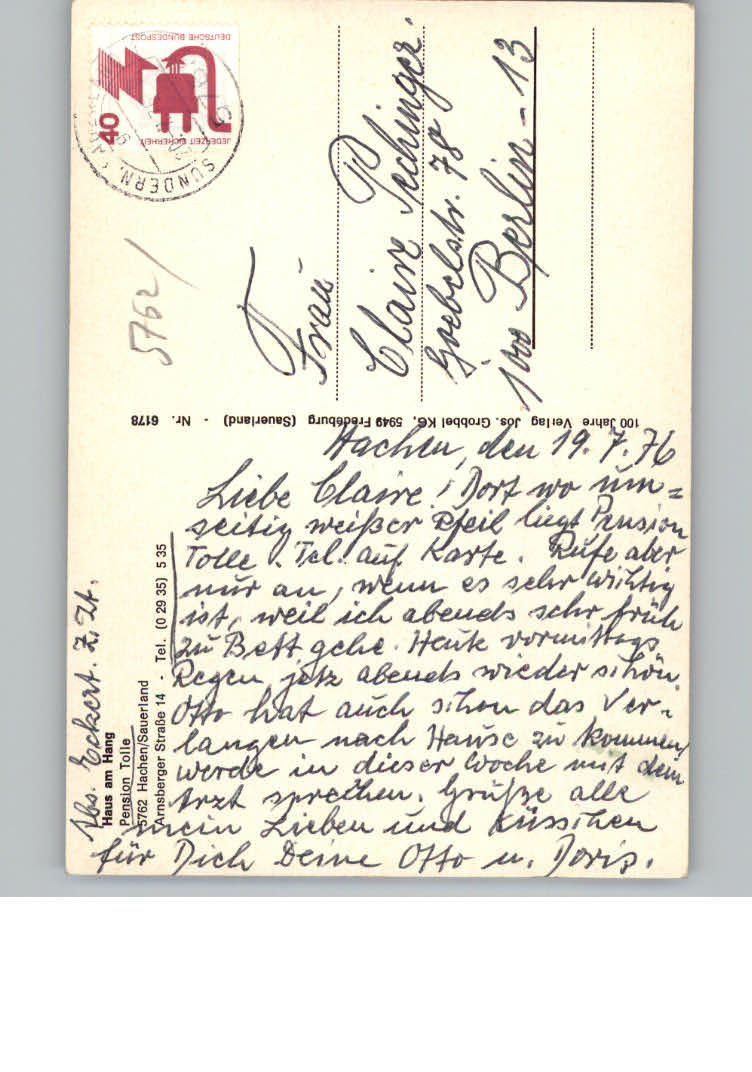 DEUTSCHE BUNDESPOST
JEDERZEIT SICHERHEIT
40
SUNDERN
5762
Frau
Claire Pechinger.
Goebelstr. 78
1000 Berlin-13
100 Jahre Verlag Jos. Grobbel KG, 5949 Fredeburg (Sauerland) - Nr. 6178
Hachen, den 19.7.76
Liebe Claire! Dort wo um=
seitig weißer Pfeil liegt Pension
Tolle. Tel. auf Karte. Rufe aber
nur an, wenn es sehr wichtig
ist, weil ich abends sehr früh
zu Bett gehe. Heute vormittags
Regen, jetz abends wieder schön.
Otto hat auch schon das Ver-
langen nach Hause zu kommen,
werde in dieser Woche mit dem
Arzt sprechen. Grüße alle
mein Lieben und Küsschen
für Dich Deine Otto u. Doris.
Abs. Eckert. z. Zt.
Haus am Hang
Pension Tolle
5762 Hachen/Sauerland
Arnsberger Straße 14 - Tel. (0 29 35) 5 35